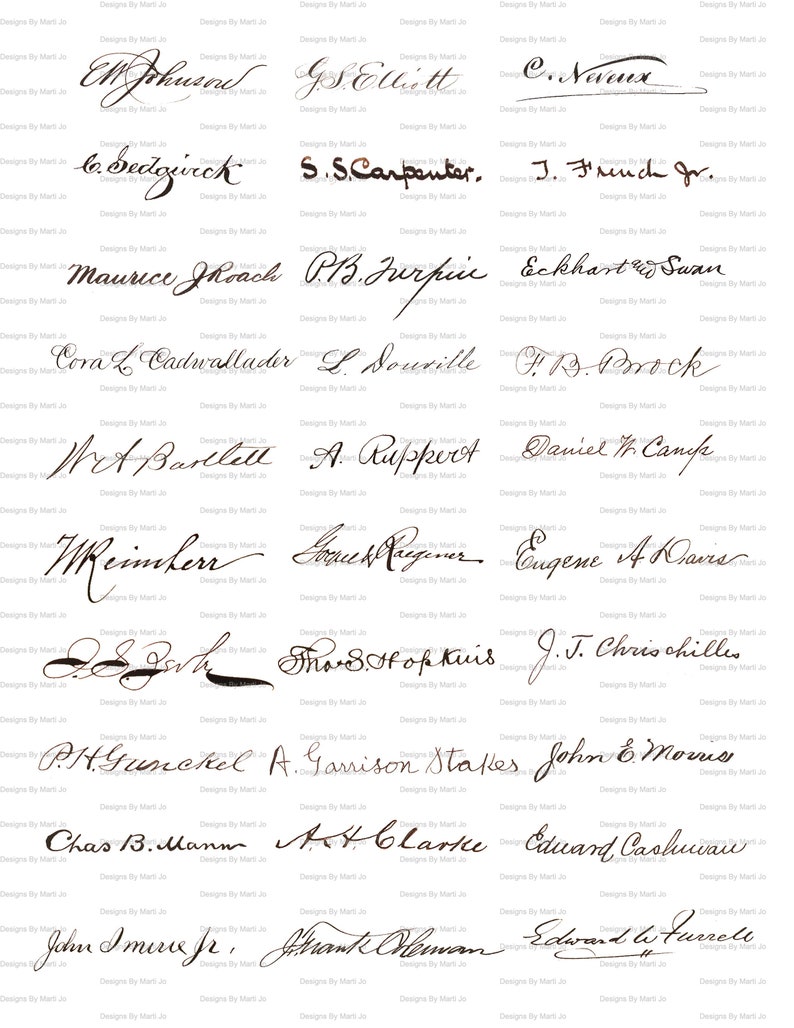 EW Johnson G.S. Elliott C. Neveux
C. Sedgwick S. S. Carpenter. T. French Jr.
Maurice J Roach P.B. Turpin Eckhart and Swan
Cora L. Cadwallader L. Douville F. B. Brock
W A Bartlett A. Ruppert Daniel W. Camp
Reinherr & Eugene A Davis
Thos. S. Hopkins J. T. Chrischilles
P. H. Gunckel A. Garrison Stakes John E. Morris
Chas B. Mann A. H. Clarke Edward
John Imirie Jr. J. Frank Edward W Furrell
Designs By Marti Jo